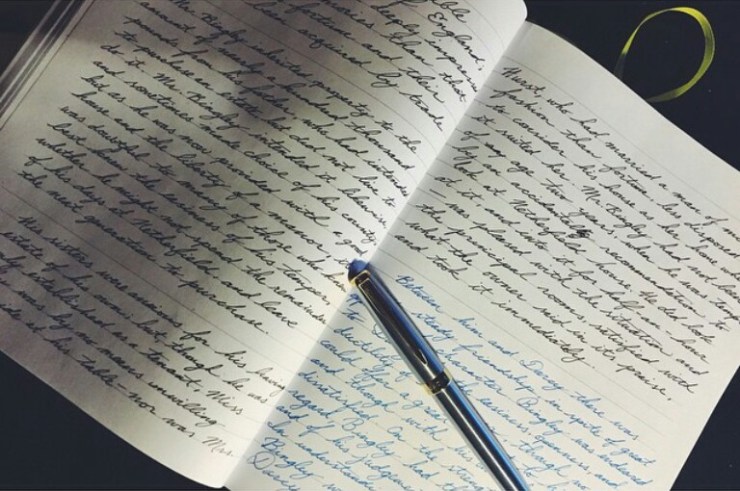 England
family in the
acquired by trade
Mr. Bingley inherited property to the
amount of nearly a hundred thousand
pounds from his father who had intended
to purchase an estate but did not live to
do it. Mr. Bingley intended it likewise
and sometimes made choice of his county
but as he was now provided with a good
house and the liberty of a manor, it
was doubtful to many of those who
best knew the easiness of his temper,
whether he might not spend the remainder
of his days at Netherfield and leave
the next generation to purchase.
His sisters were anxious for his having
estate of his own; but though he was
only established as a tenant, Miss
by no means unwilling
his table—nor was Mrs.
Hurst, who had married a man of
more fashion than fortune, less disposed
to consider his house as her home when
it suited her. Mr. Bingley had not been
of age two years when he was tempted
by an accidental recommendation to
look at Netherfield House. He did look
at it and into it for half-an-hour
was pleased with the situation and
the principal rooms, satisfied with
what the owner said in its praise,
and took it immediately.
Between him and Darcy there was
a steady friendship in spite of great
character. Bingley was endeared
easiness, openness and
ductility of
could offer a greater
dissatisfied. On the strength
regard Bingley had the
of his judgement
understanding
Bingley
Darcy